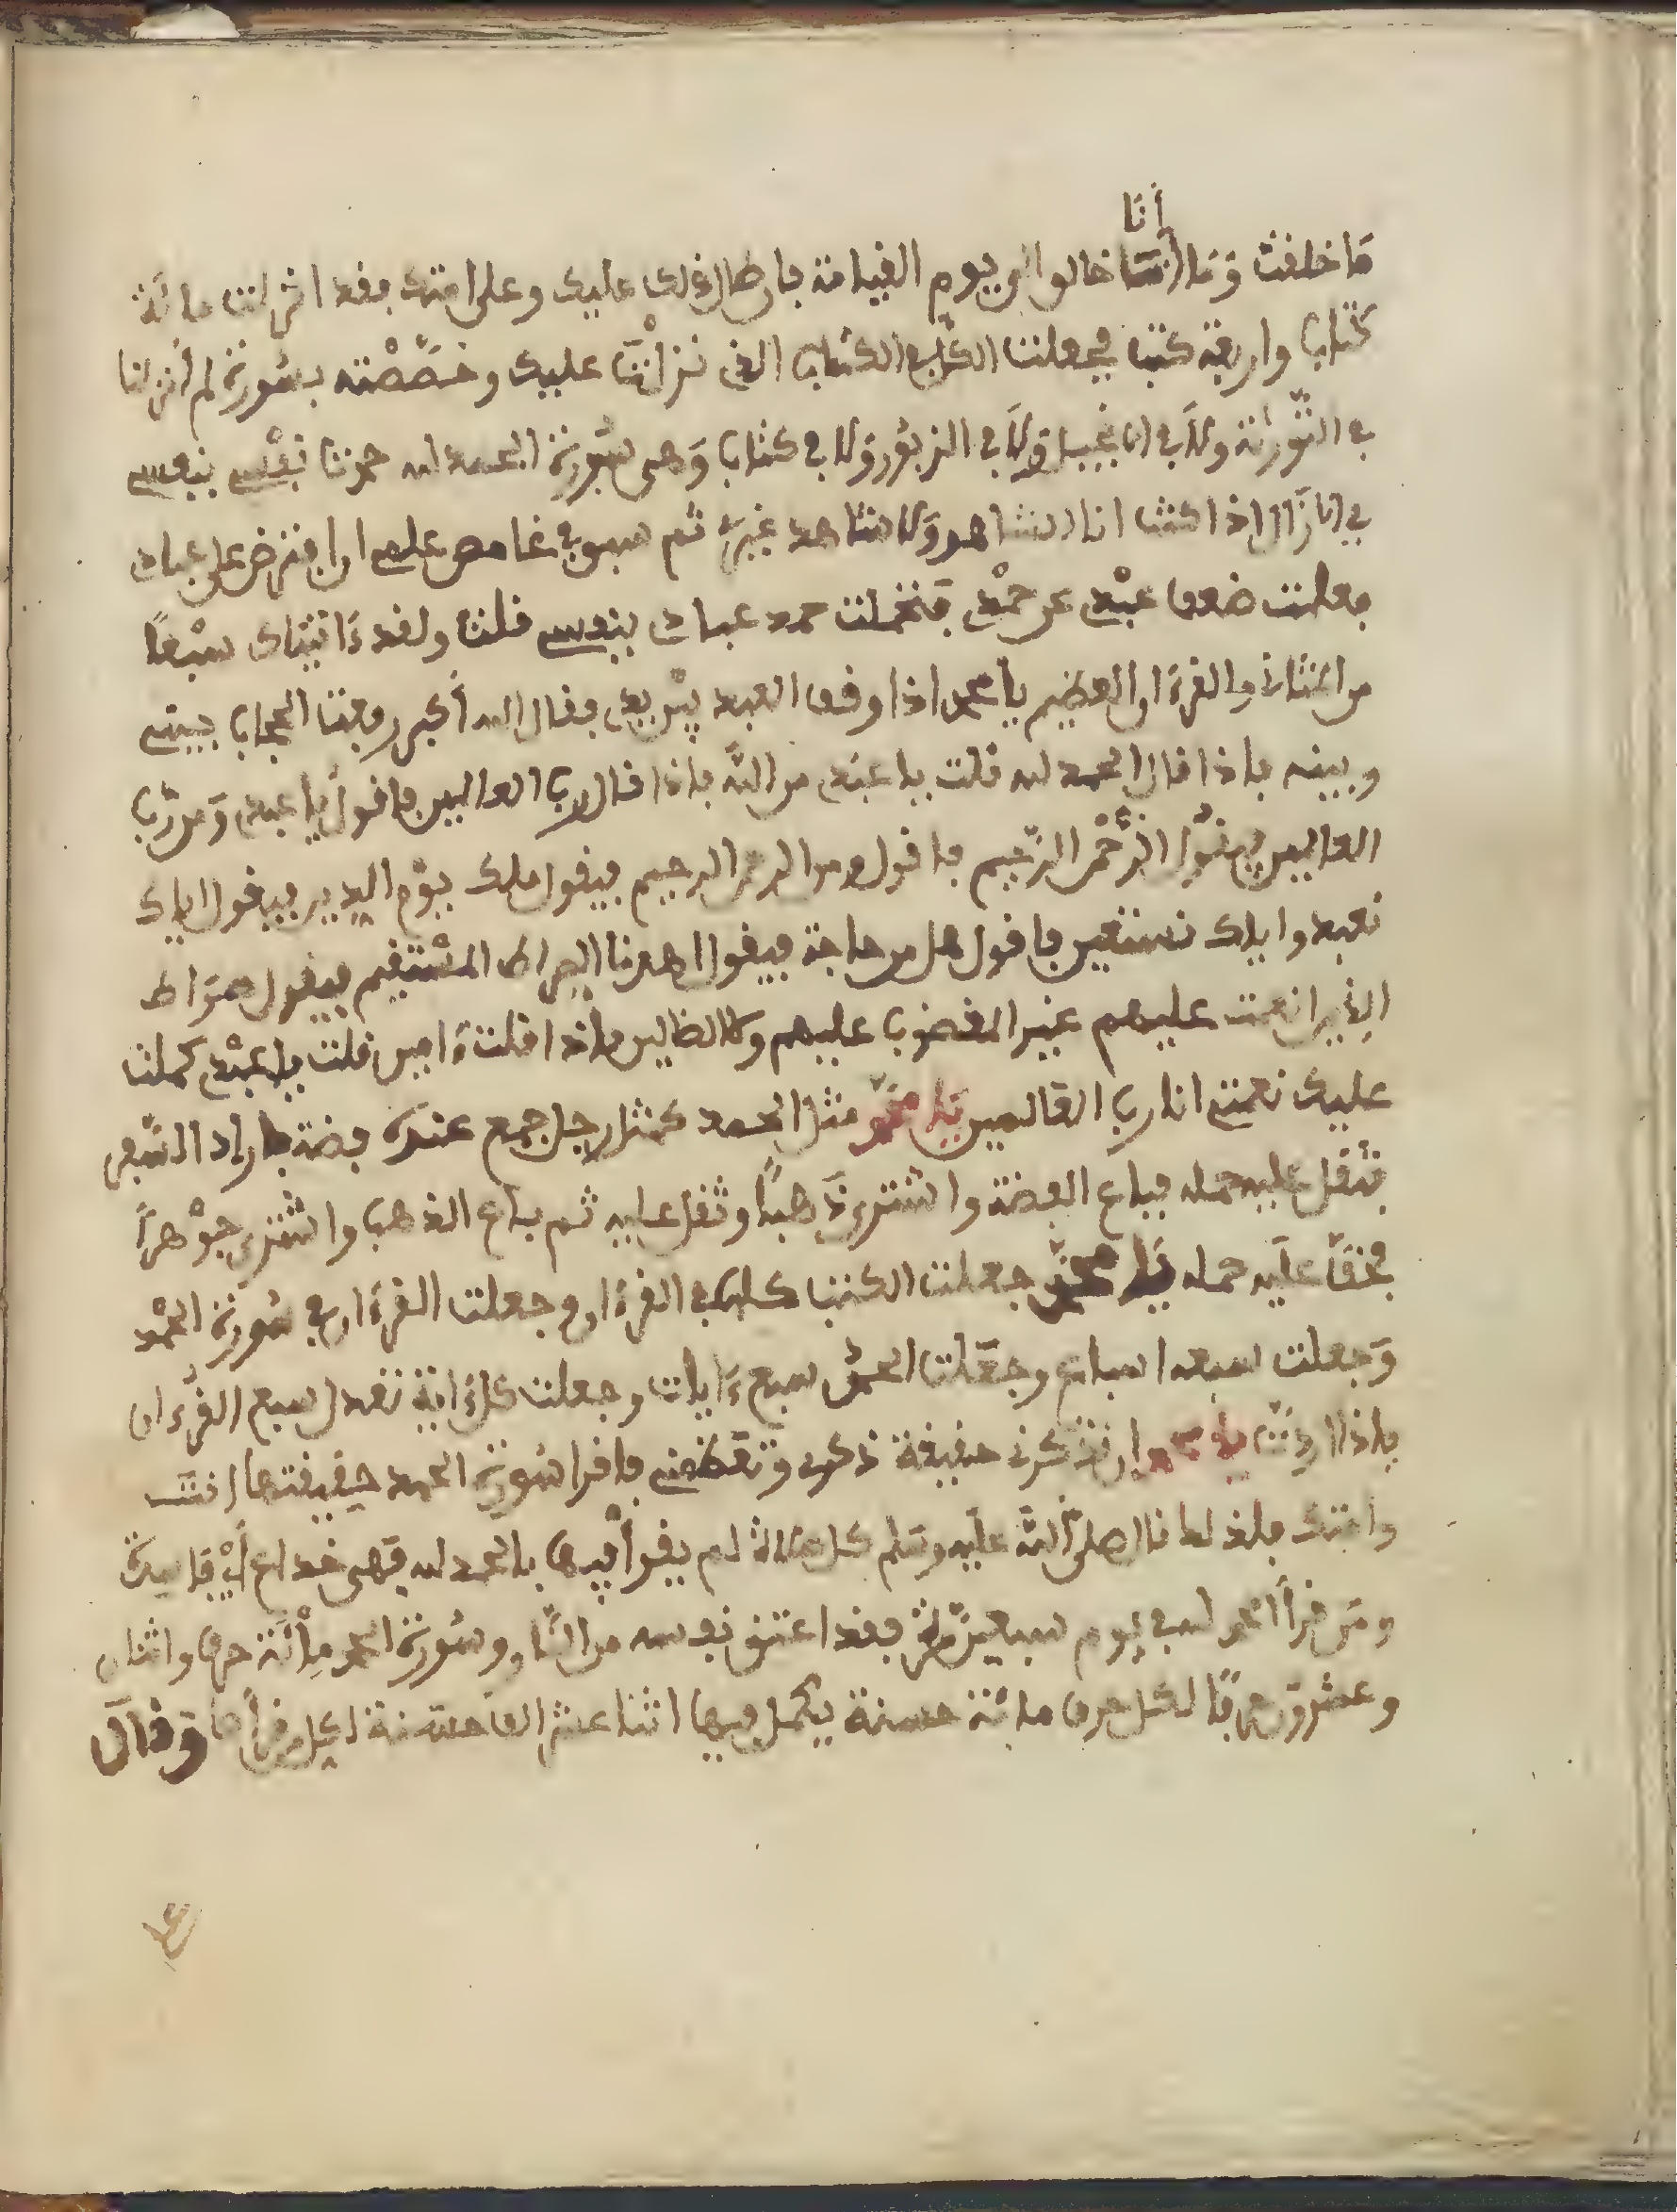 أنا
مَا خلقت وَمَا أنا خالق الى يوم القيامة فان طال ذلك عليك وعلى امتك فقد انزلت مائة
كتاب واربعة كتب فجعلت الكل في الكتاب الذى نزلت عليك وخصَّصْته بسُورة لم أنزلها
في التَّورٰىة ولاَ في الانجيل ولاَ في الزبُور وَلا في كتاب وَهى سُورة الحمد لله حمدت نفْسى بنفسى
في الازَال اذا كنت انا الشاهد وَلا شاهد غيرى ثم سبق في غامض علمى ان افترض على عبادى
فعلمت ضعف عبْدى عن حمْدى فتحملت حمد عبادى بنفسى فقلت ولقد ءَاتيناك سبْعاً
من المثانى والقرءان العظيم يا محمد اذا وقف العبد بيْن يدى فقال الله أكبر رفعت الحجاب بينى
وبينه فاذا قال الحمد لله قلت يا عبدى من اللّٰه فاذا قال رب العالمين فاقول يا عبدى وَمن ربّ
العالمين فيقُول الرَّحْمن الرَّحيم فاقول ومن الرحمن الرحيم فيقول ملك يوْم الدين فيقول اياك
نعبد واياك نستعين فاقول هل من حاجة فيقول اهدنا الصراط المسْتقيم فيقول صرَاط
الذين انعمت عليهم غير المغضوب عليهم ولا الظالين فاذا قلت ءَامين قلت يا عبْدى كملت
عليك نعمتى انا رب العَالمين يَا محمَّد مثل الحمد كمثل رجل جمع عندَه فضة فاراد السَّفر
فثقل عليه حمله فباع الفضة واشترى ذَهباً وثقل عليه ثم باع الذهب واشْترى جوْهراً
فخفّ عليَه حمله يَا محمَّد جعلت الكتب كلها في القرءان وجعلت القرءان في سُورة الحمْد
وَجعلت سبعه اسباع وجعَلت الحمْد سبع ءَايات وجعلت كل ءَاية تعْدل سبع القرْءان
فاذا اردْتَّ يا محمد ان تذكرنى حقيقة ذكرى وتَعَظّمنى فاقرا سُورة الحمد حقيقتها انت
وامتك فلذلك قال صلى اللّٰه عليَه وسَلم كل صلاة لم يقْرأ فيها بالحمد لله فَهى خداع أىْ فَاسدة
ومَن قرأ الحمد لله في يوم سبعينَ مرّة فقد اعتق نفسه من النَّار وسُورة الحمد مِائَة حرف واثنان
وعشرُون حرفًا لكل حرف مائة حسنة يكمل فيها اثنا عشر الف حسَنة لكل من قرأها وَقالَ